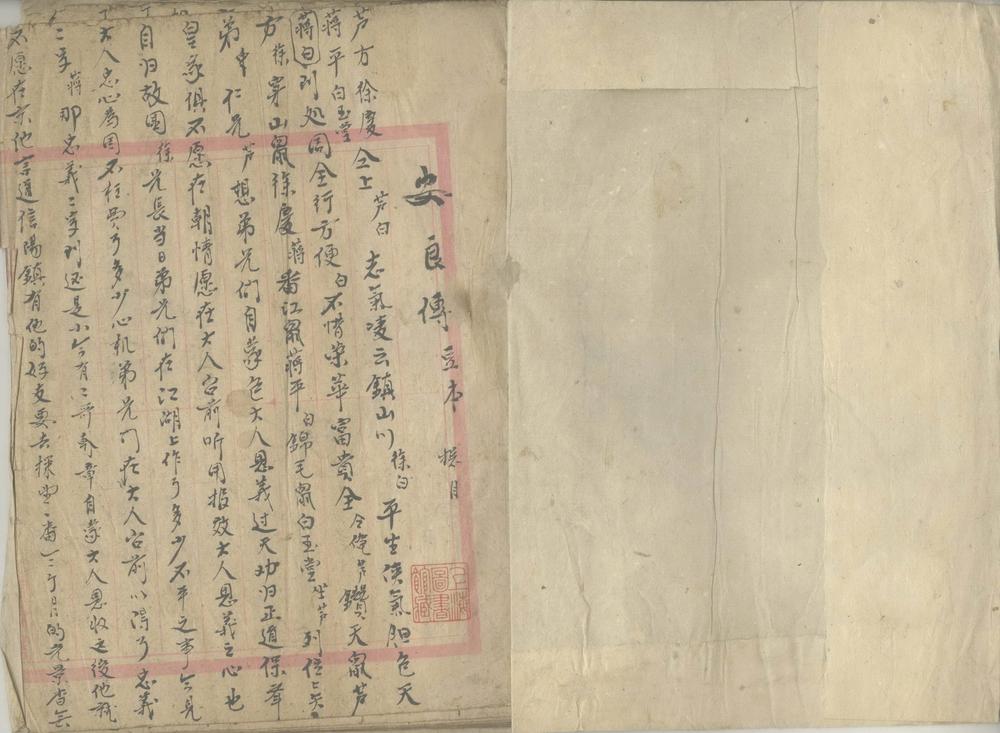 安良傳 豆本 接目
芦方徐慶仝上 芦白 志氣凌云鎮山川 徐白 平生俠氣胆包天
蔣平白玉堂
蔣白 到処周全行方便 白 不惜荣華富貴全 仝 俺 芦 鑽天鼠芦
方 徐 穿山鼠徐慶 蔣 番江鼠蔣平 白 錦毛鼠白玉堂 坐 芦 列位
弟 仁兄 芦 想弟兄们自蒙包大人恩義过天劝归正道保
皇家俱不愿在朝情愿在大人台前听用报效大人恩義之心也
自归故国 徐 兄長当日弟兄们在江湖上作了多少不平之事今見
大人忠心為国不枉費了多少心机弟兄们在大人台前以得了忠義
二字 蔣 那忠義二字到还是小今有二哥奉章自蒙大人恩收之後他就
不愿在京他言道信陽鎮有他的好友要去探望一番
上海圖書館藏